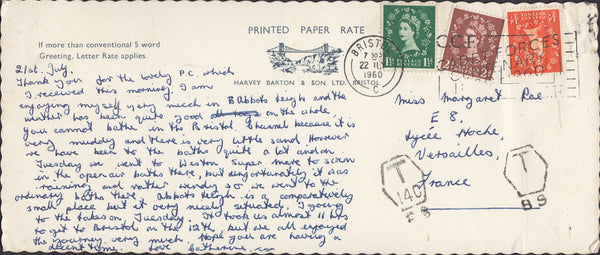 PRINTED PAPER RATE
If more than conventional 5 word
Greeting, Letter Rate applies.
HARVEY BARTON & SON LTD. BRISTOL
21st. July.
Thank you for the lovely P.C. which
I received this morning. I am
enjoying myself very much in B Abbots Leigh and the
weather has been quite good on the whole.
You cannot bathe in the Bristol Channel because it is
very muddy and there is very little sand. However
we have been to the baths quite a lot and on
Tuesday we went to Weston Super Mare to swim
in the open air baths there, but unfortunately it was
raining and rather windy so we went to the
ordinary baths there. Abbots Leigh is a comparatively
small place but it very nicely situated. I going
to the Lakes on, Tuesday. It took us almost 11 hrs
to get to Bristol on the 12th but we all enjoyed
the journey very much. Hope you are having a
decent time. Love Catherine. xx
BRISTOL
7 30
22 JLY
1960
C
1½D 1½D
2D 2D
Miss Margaret Rae
E 8,
Lycée Hoche,
Versailles,
France
T
140
FS
T
BS